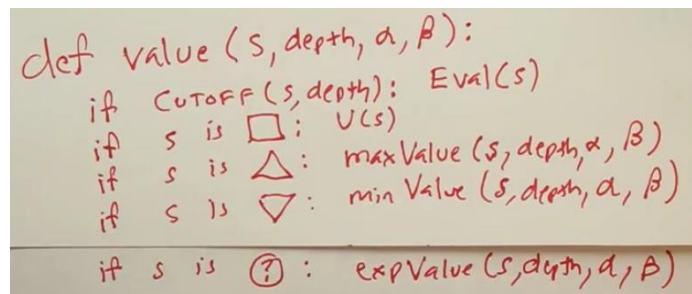 def value (s, depth, α, β):
if CUTOFF (s, depth): Eval(s)
if s is □: U(s)
if s is △: maxValue (s, depth, α, β)
if s is ▽: min Value (s, depth, α, β)
if s is ?: expValue (s, depth, α, β)